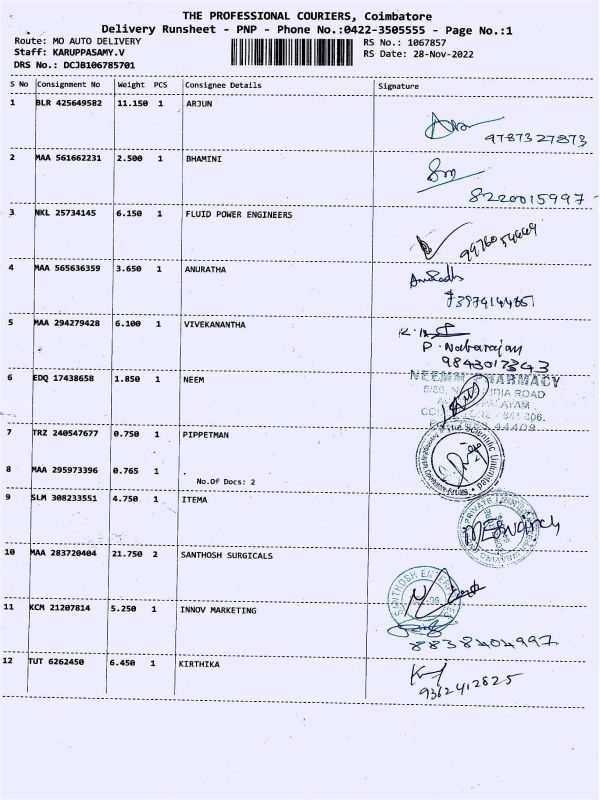 THE PROFESSIONAL COURIERS, Coimbatore
Delivery Runsheet - PNP - Phone No.:0422-3505555 - Page No.:1
Route: MO AUTO DELIVERY
RS No.: 1067857
Staff: KARUPPASAMY.V
RS Date: 28-Nov-2022
DRS No.: DCJB106785701
S No Consignment No Weight PCS Consignee Details Signature
1 BLR 425649582 11.150 1 ARJUN
9787327873
2 MAA 561662231 2.500 1 BHAMINI
8220015997
3 NKL 25734145 6.150 1 FLUID POWER ENGINEERS
9976054669
4 MAA 565636359 3.650 1 ANURATHA
Anuradh
5 MAA 294279428 6.100 1 VIVEKANANTHA
P. Nabarajan
9843017343
6 EDQ 17438658 1.850 1 NEEM
NEEMM PHARMACY
INDIA ROAD
7 TRZ 240547677 0.750 1 PIPPETMAN
The Scientific
8 MAA 295973396 0.765 1
No.Of Docs: 2
9 SLM 308233551 4.750 1 ITEMA
PRIVATE
10 MAA 283720404 21.750 2 SANTHOSH SURGICALS
11 KCM 21207814 5.250 1 INNOV MARKETING
8838404997
12 TUT 6262450 6.450 1 KIRTHIKA
9362412825